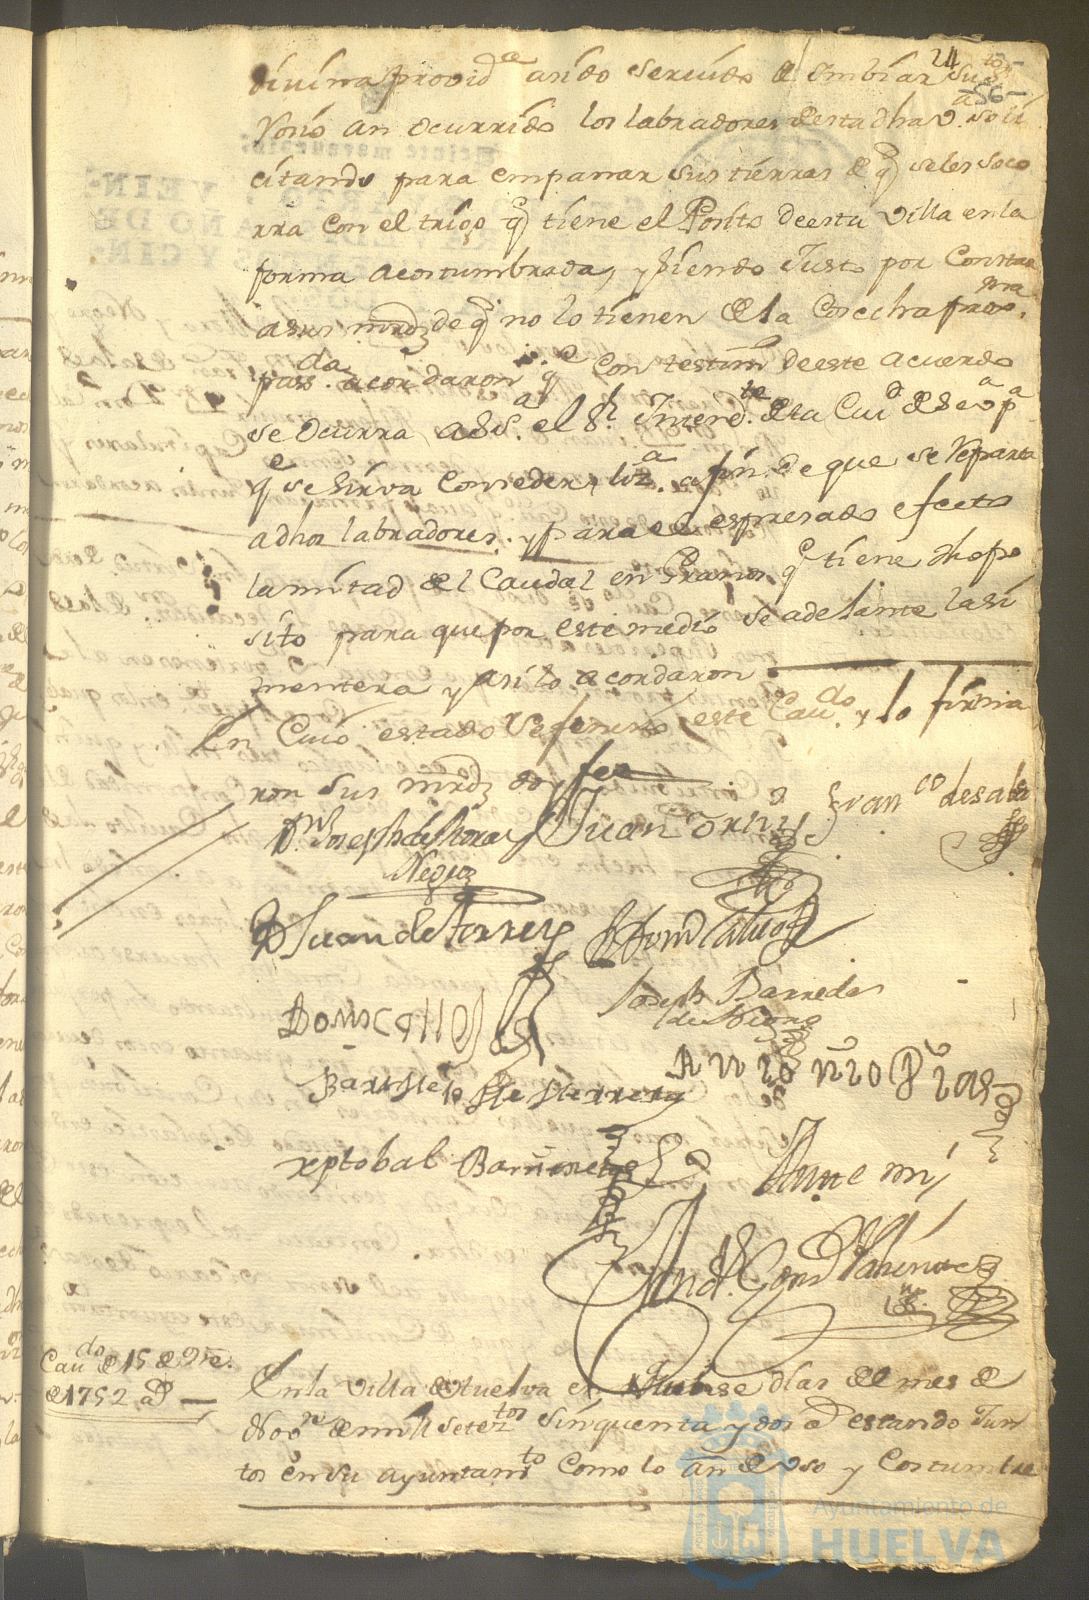 24
56
divina provid.ª a sido servido de embiar su
Rosio an ocurrido los labradores de esta dha v.ª soli
citando para empanar sus tierras de q̃ se les soco
rra con el trigo q̃ tiene el Posito de esta Villa en la
forma acostumbrada, y siendo Justo por Constar
a sus mrds de q̃ no lo tienen de la Cosecha prox.ma
pass.da acordaron q.e Con testim.o de este acuerdo
se ocurra a S S.ª el S.r Intend.te de la Ciu.d de Sev.ª p.ª
q.e se sirva Conseder liz.ª a fin de que se Reparta
a dhos labradores. y para el espresado efecto
la mitad del Caudal en Granos q.e tiene dho po
sito para que por este medio se adelante la si
mentera y asi lo acordaron
En Cuio estado se fenesio este Cav.do y lo firma
ron sus mrds doy fee
D.n Joseph de
Negro
Juan
Fran.co de Sala
D Juan de Torres
Joseph Barreda
Bartolome de Herrera
Antonio
xptobal
Ante mi
And.s
Cav.do de 15 de Nre.
de 1752 a.s
En la Villa de Huelva en quinse dias del mes de
Nov.re de mill setez.tos sinquenta y dos a.s estando Jun
tos en su ayuntam.to Como lo an de Uso y Costumbre
Ayuntamiento de
HUELVA